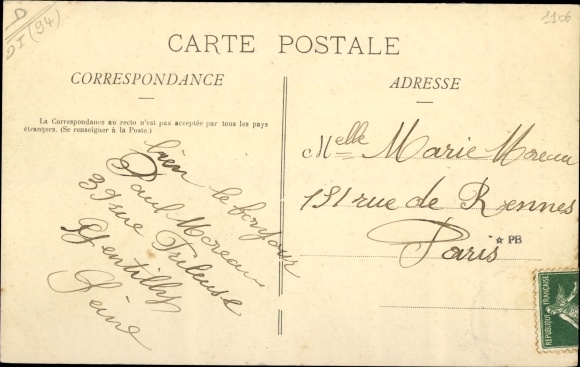 D
DI (94)
1106
CARTE POSTALE
CORRESPONDANCE
La Correspondance au recto n'est pas acceptée par tous les pays
étrangers. (Se renseigner à la Poste.)
bien le bonjour
Paul Moreau
39 rue Frileuse
Gentilly
Seine
ADRESSE
Melle Marie Moreau
131 rue de Rennes
Paris
PB
REPUBLIQUE FRANÇAISE